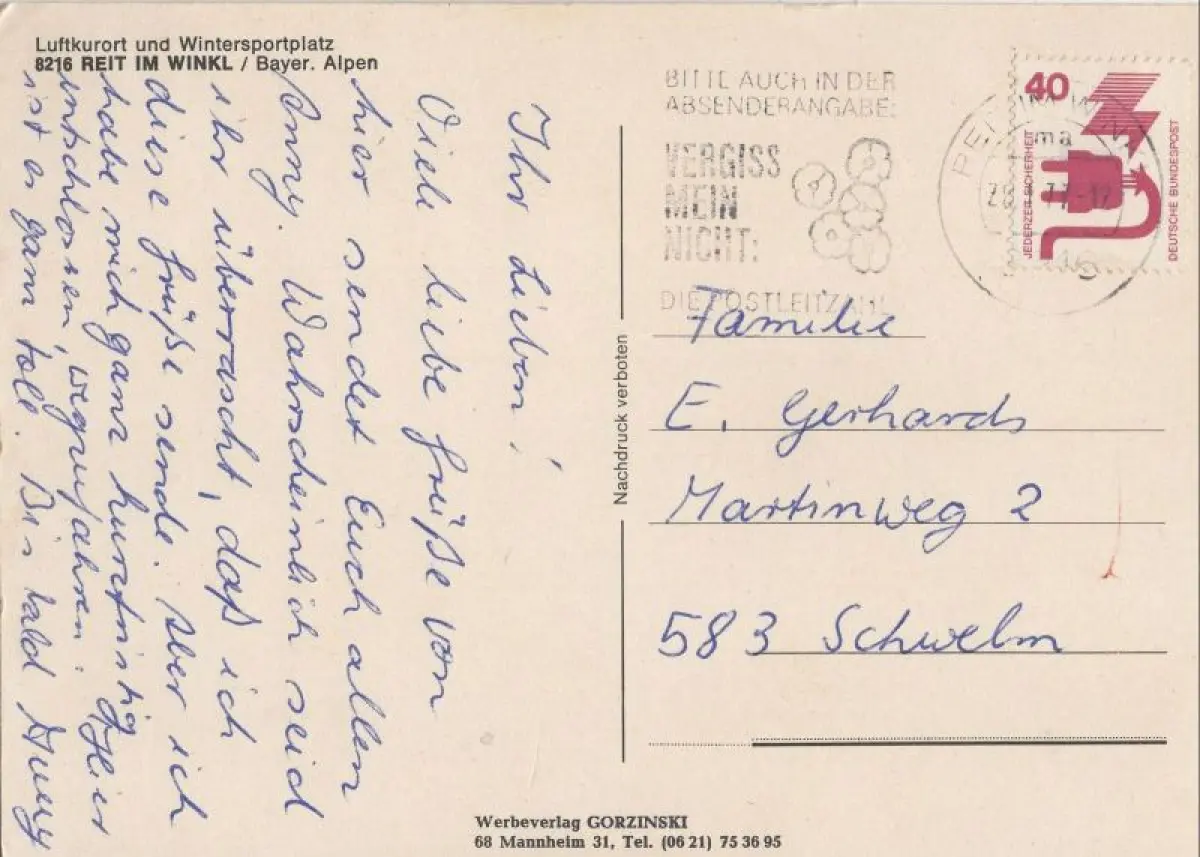 Luftkurort und Wintersportplatz
8216 REIT IM WINKL / Bayer. Alpen
Ihr Lieben!
Viele liebe Grüße von
hier sendet Euch allen
Anny. Wahrscheinlich seid
ihr überrascht, daß ich
diese Grüße sende. Aber ich
habe mich ganz kurzfristig
entschlossen, wegzufahren. Hier
ist es ganz toll. Bis bald Anny
Nachdruck verboten
BITTE AUCH IN DER
ABSENDERANGABE:
VERGISS
MEIN
NICHT:
DIE POSTLEITZAHL
40
JEDERZEIT SICHERHEIT
DEUTSCHE BUNDESPOST
ma
77-12
Familie
E. Gerhards
Martinweg 2
583 Schwelm
Werbeverlag GORZINSKI
68 Mannheim 31, Tel. (06 21) 75 36 95